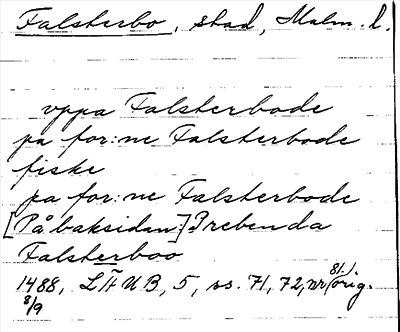 Falsterbo, stad, Malm. l.
vppa Falsterbode
pa for:ne Falsterbode
fiske
pa for:ne Falsterbode
[På baksidan:] Prebenda
Falsterboo
1488, LÄUB, 5, ss. 71, 72, nr 81.) orig.
8/9